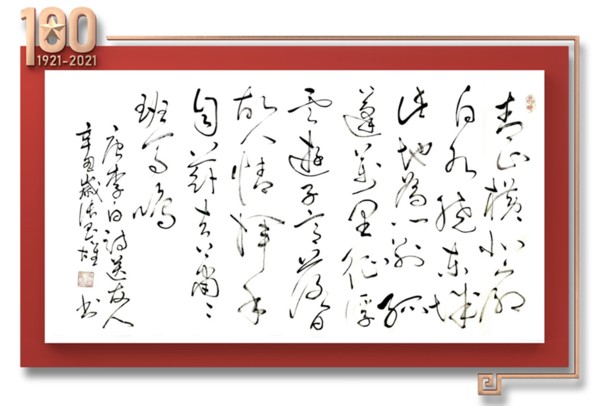 100
1921-2021
青山横北郭
白水绕东城
此地为一别孤
蓬万里征浮
云遊子意落日
故人情挥手
自兹去萧萧
班马鸣
唐李白诗送友人
辛丑岁 书